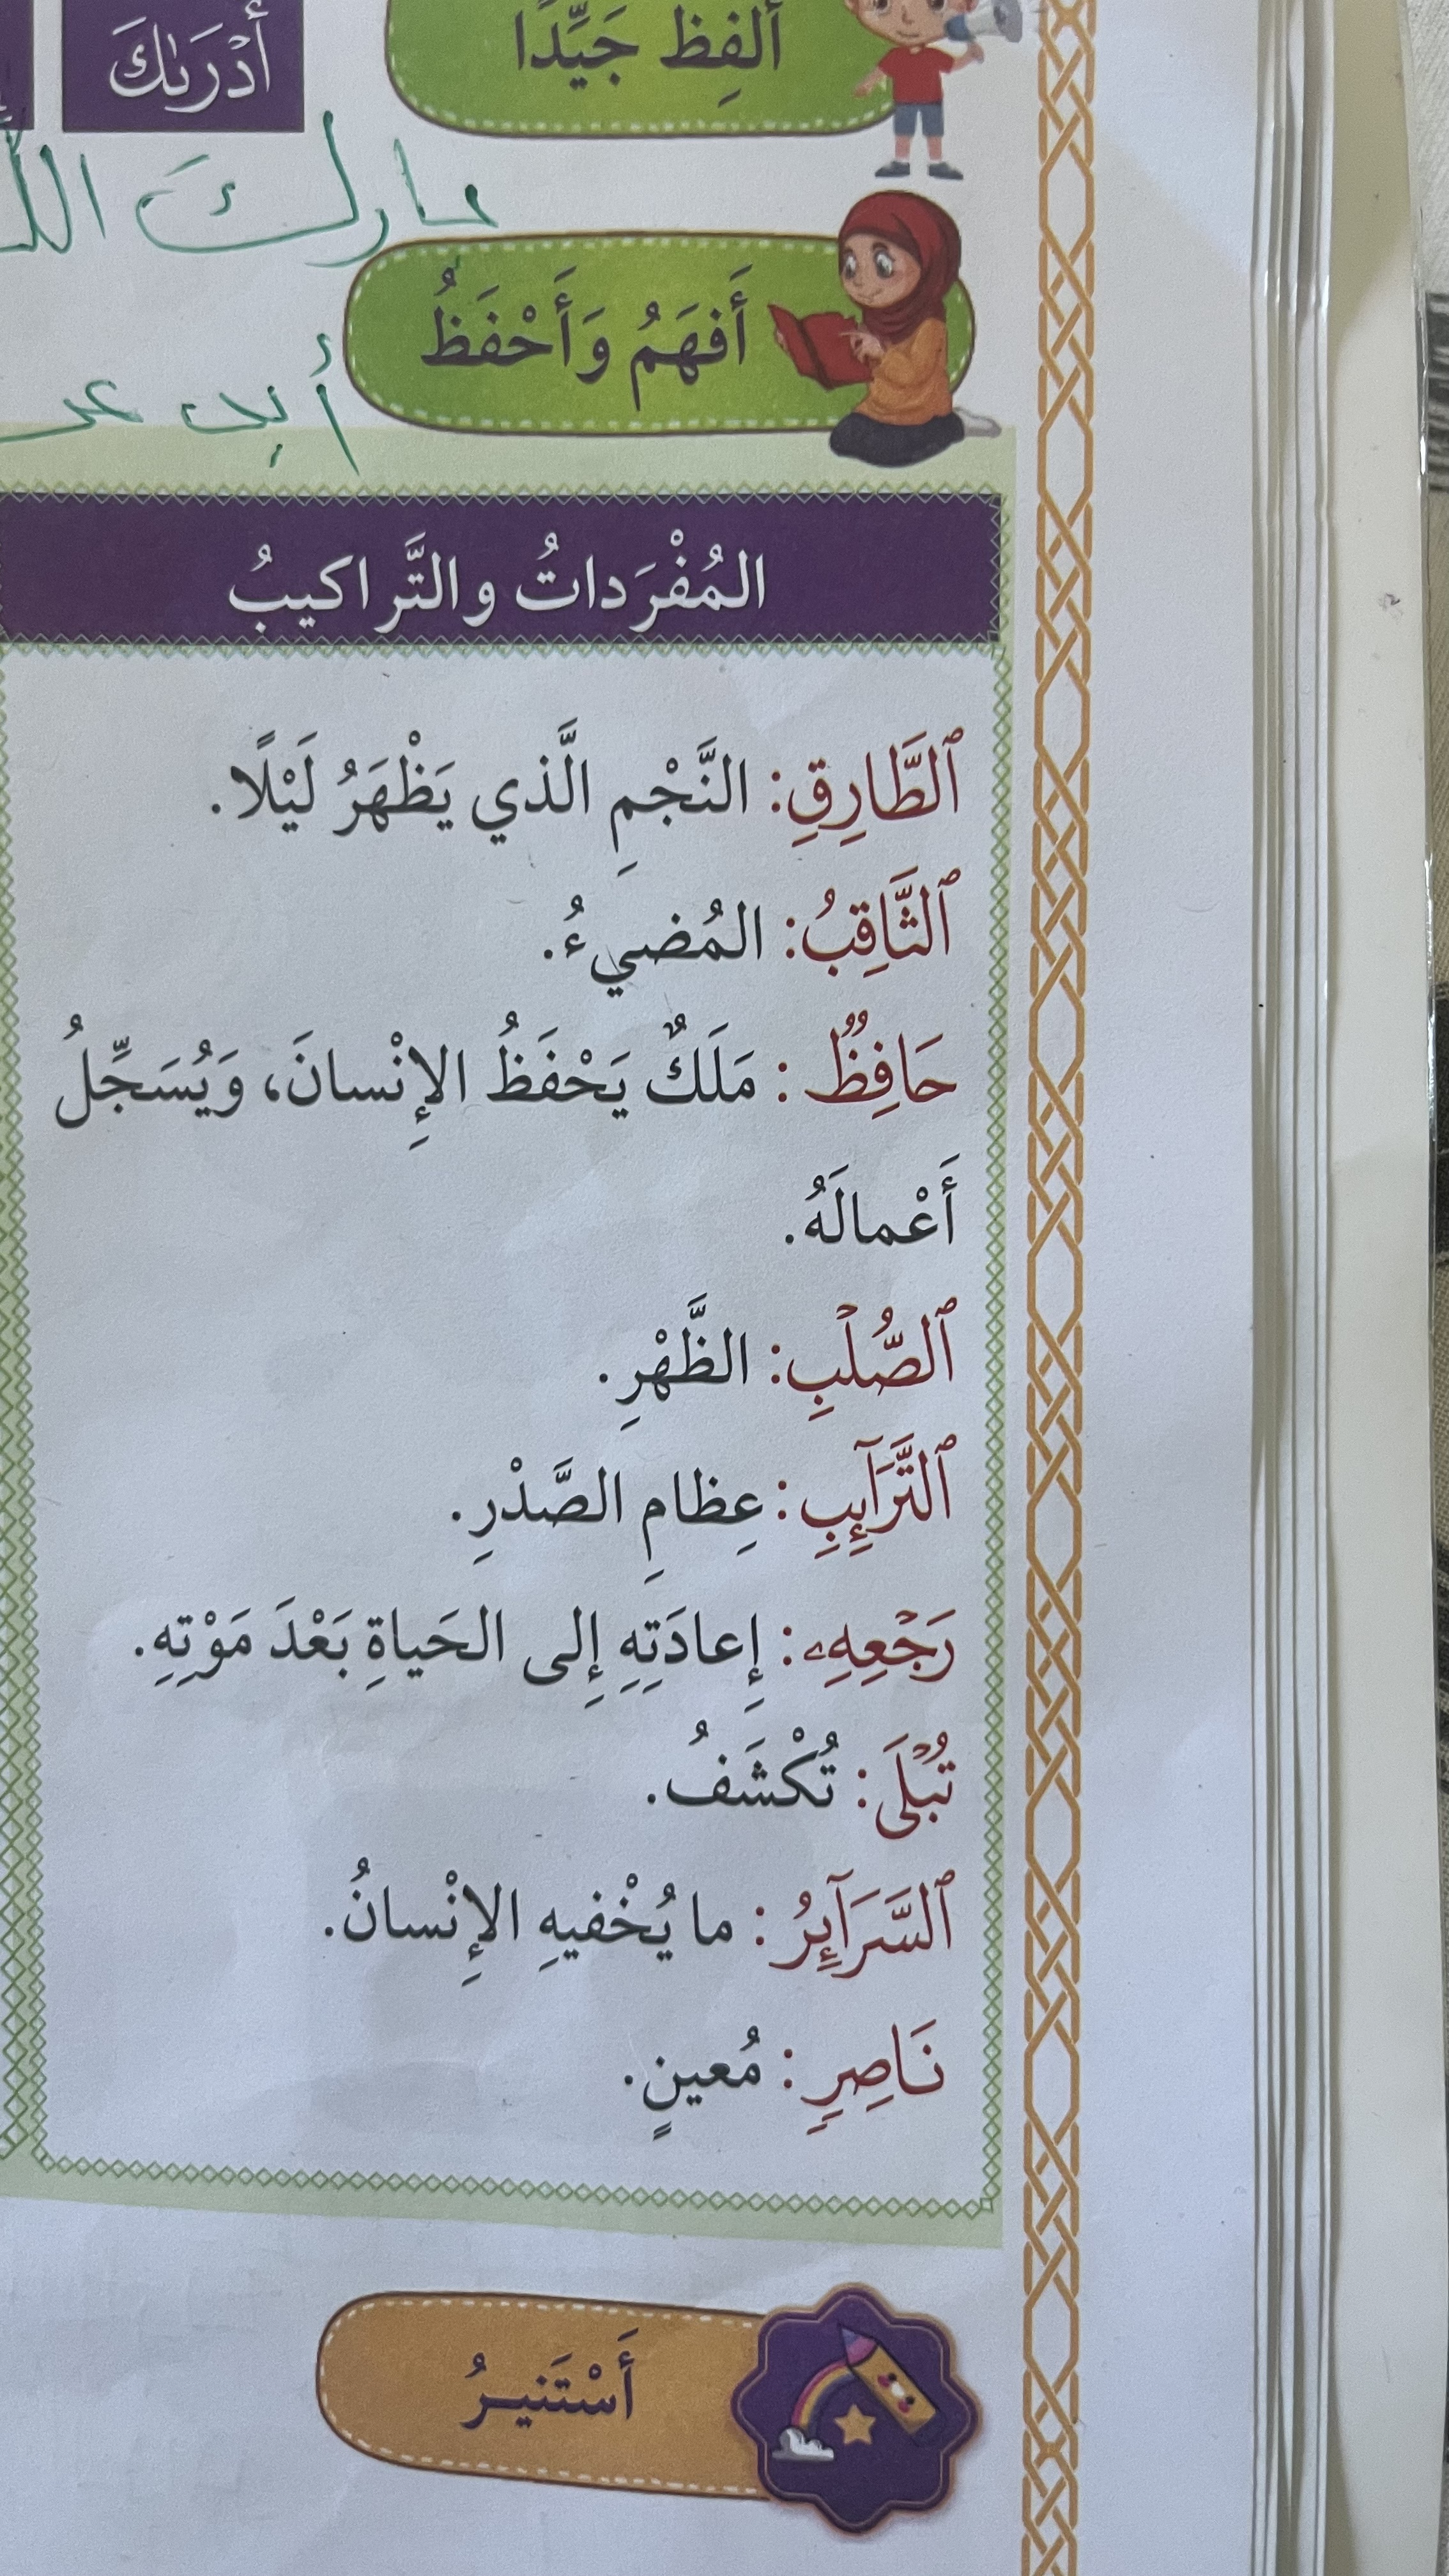 أَلْفِظُ جَيِّدًا
أَدْرَىٰكَ
أَفهَمُ وَأَحْفَظُ
المُفْرَداتُ والتَّراكيبُ
ٱلطَّارِقِ: النَّجْمِ الَّذي يَظْهَرُ لَيْلًا.
ٱلثَّاقِبُ: المُضيءُ.
حَافِظٌ: مَلَكٌ يَحْفَظُ الإِنْسانَ، وَيُسَجِّلُ
أَعْمالَهُ.
ٱلصُّلْبِ: الظَّهْرِ.
ٱلتَّرَآئِبِ: عِظامِ الصَّدْرِ.
رَجْعِهِۦ: إِعادَتِهِ إِلى الحَياةِ بَعْدَ مَوْتِهِ.
تُبْلَى: تُكْشَفُ.
ٱلسَّرَآئِرُ: ما يُخْفيهِ الإِنْسانُ.
نَاصِرٍ: مُعينٍ.
أَسْتَنيرُ